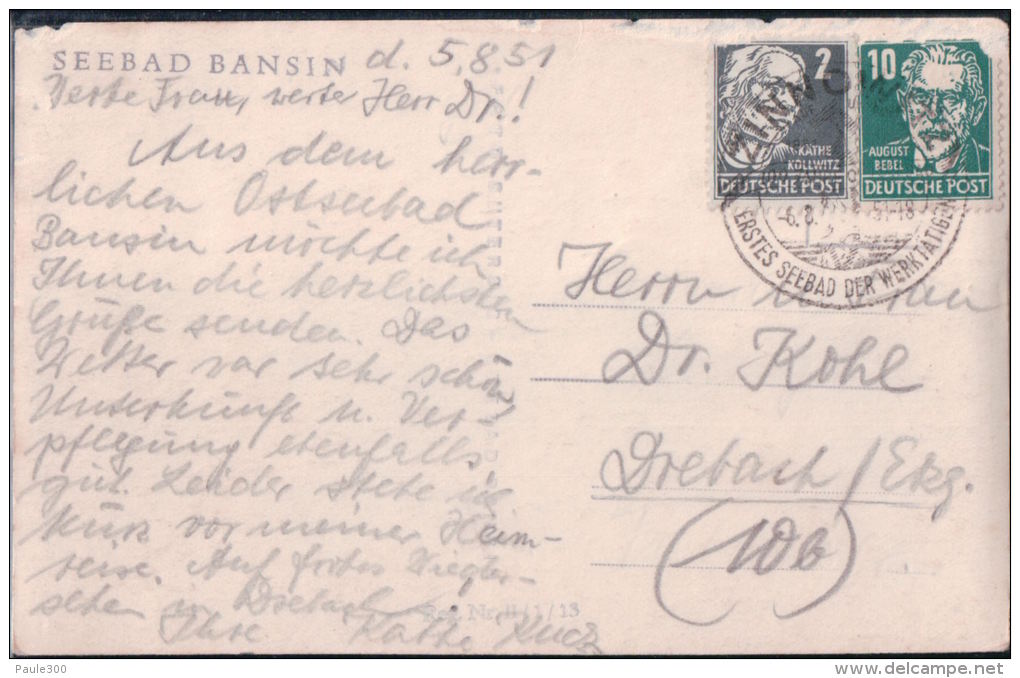 SEEBAD BANSIN d. 5.8.51
Werte Frau, werter Herr Dr.!
Aus dem herr-
lichen Ostseebad
Bansin möchte ich
Ihnen die herzlichsten
Grüße senden. Das
Wetter war sehr schön,
Unterkunft u. Ver-
pflegung ebenfalls
gut. Leider stehe ich
kurz vor meiner Heim-
reise. Auf frohes Wieder-
sehen in Drebach
Ihre Käthe
2
KÄTHE
KOLLWITZ
DEUTSCHE POST
10
AUGUST
BEBEL
DEUTSCHE POST
ZINNOWITZ
-6.8.51-18
ERSTES SEEBAD DER WERKTÄTIGEN
Herrn
Dr. Kohl
Drebach/Erzg.
(10b)
Reg. Nr. II/1/13
Paule300
delcampe.net